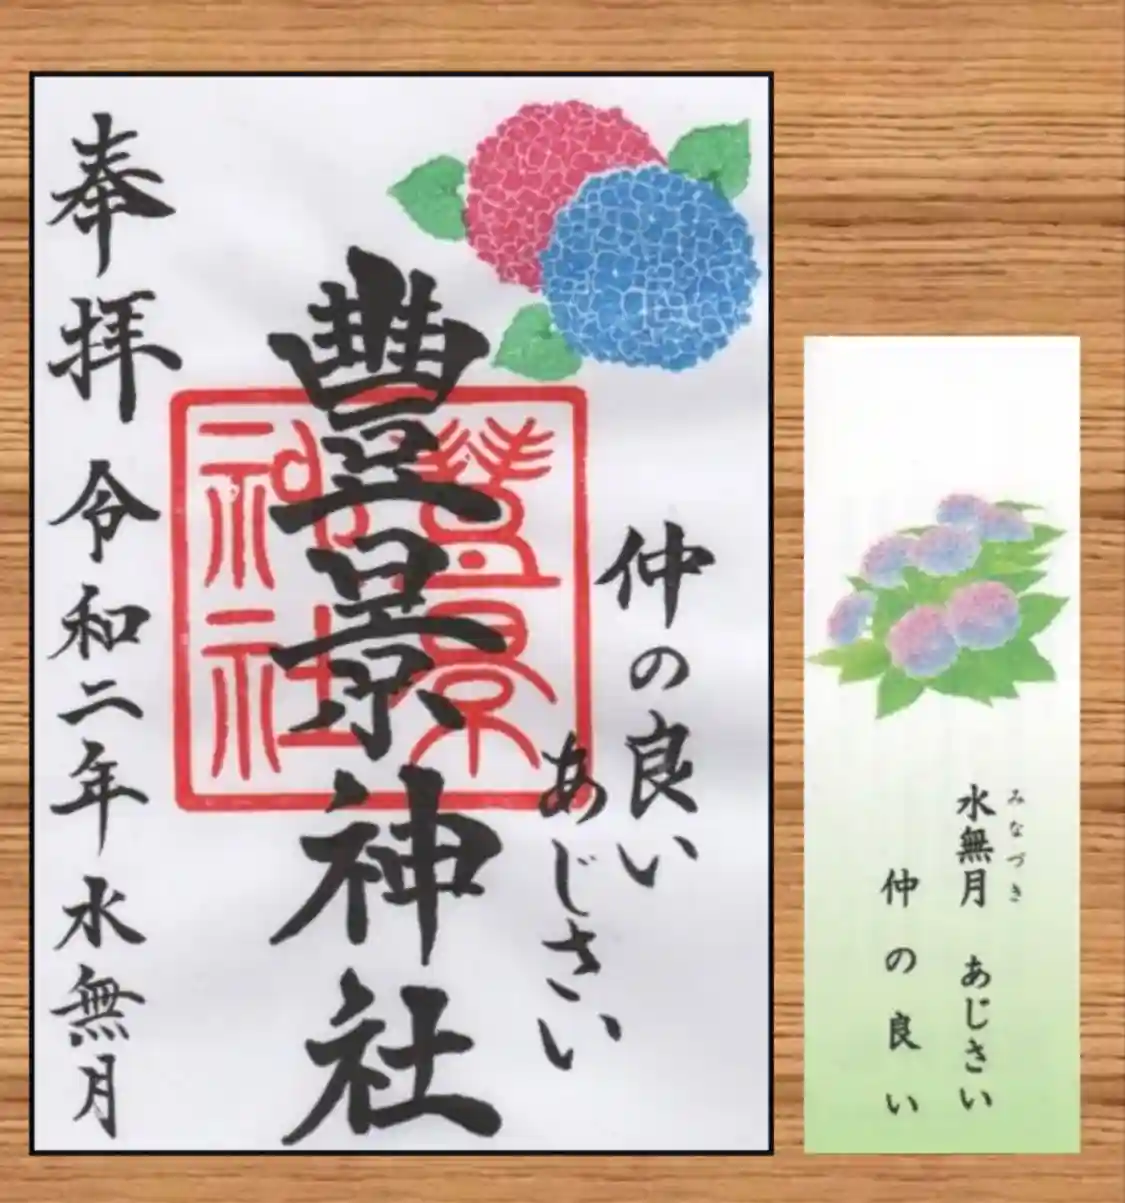 仲の良い
あじさい
豐景神社
豐景
神社
奉拝 令和二年 水無月
みなづき
水無月 あじさい
仲の良い